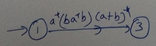 1 a*(ba*b) (a+b)* 3